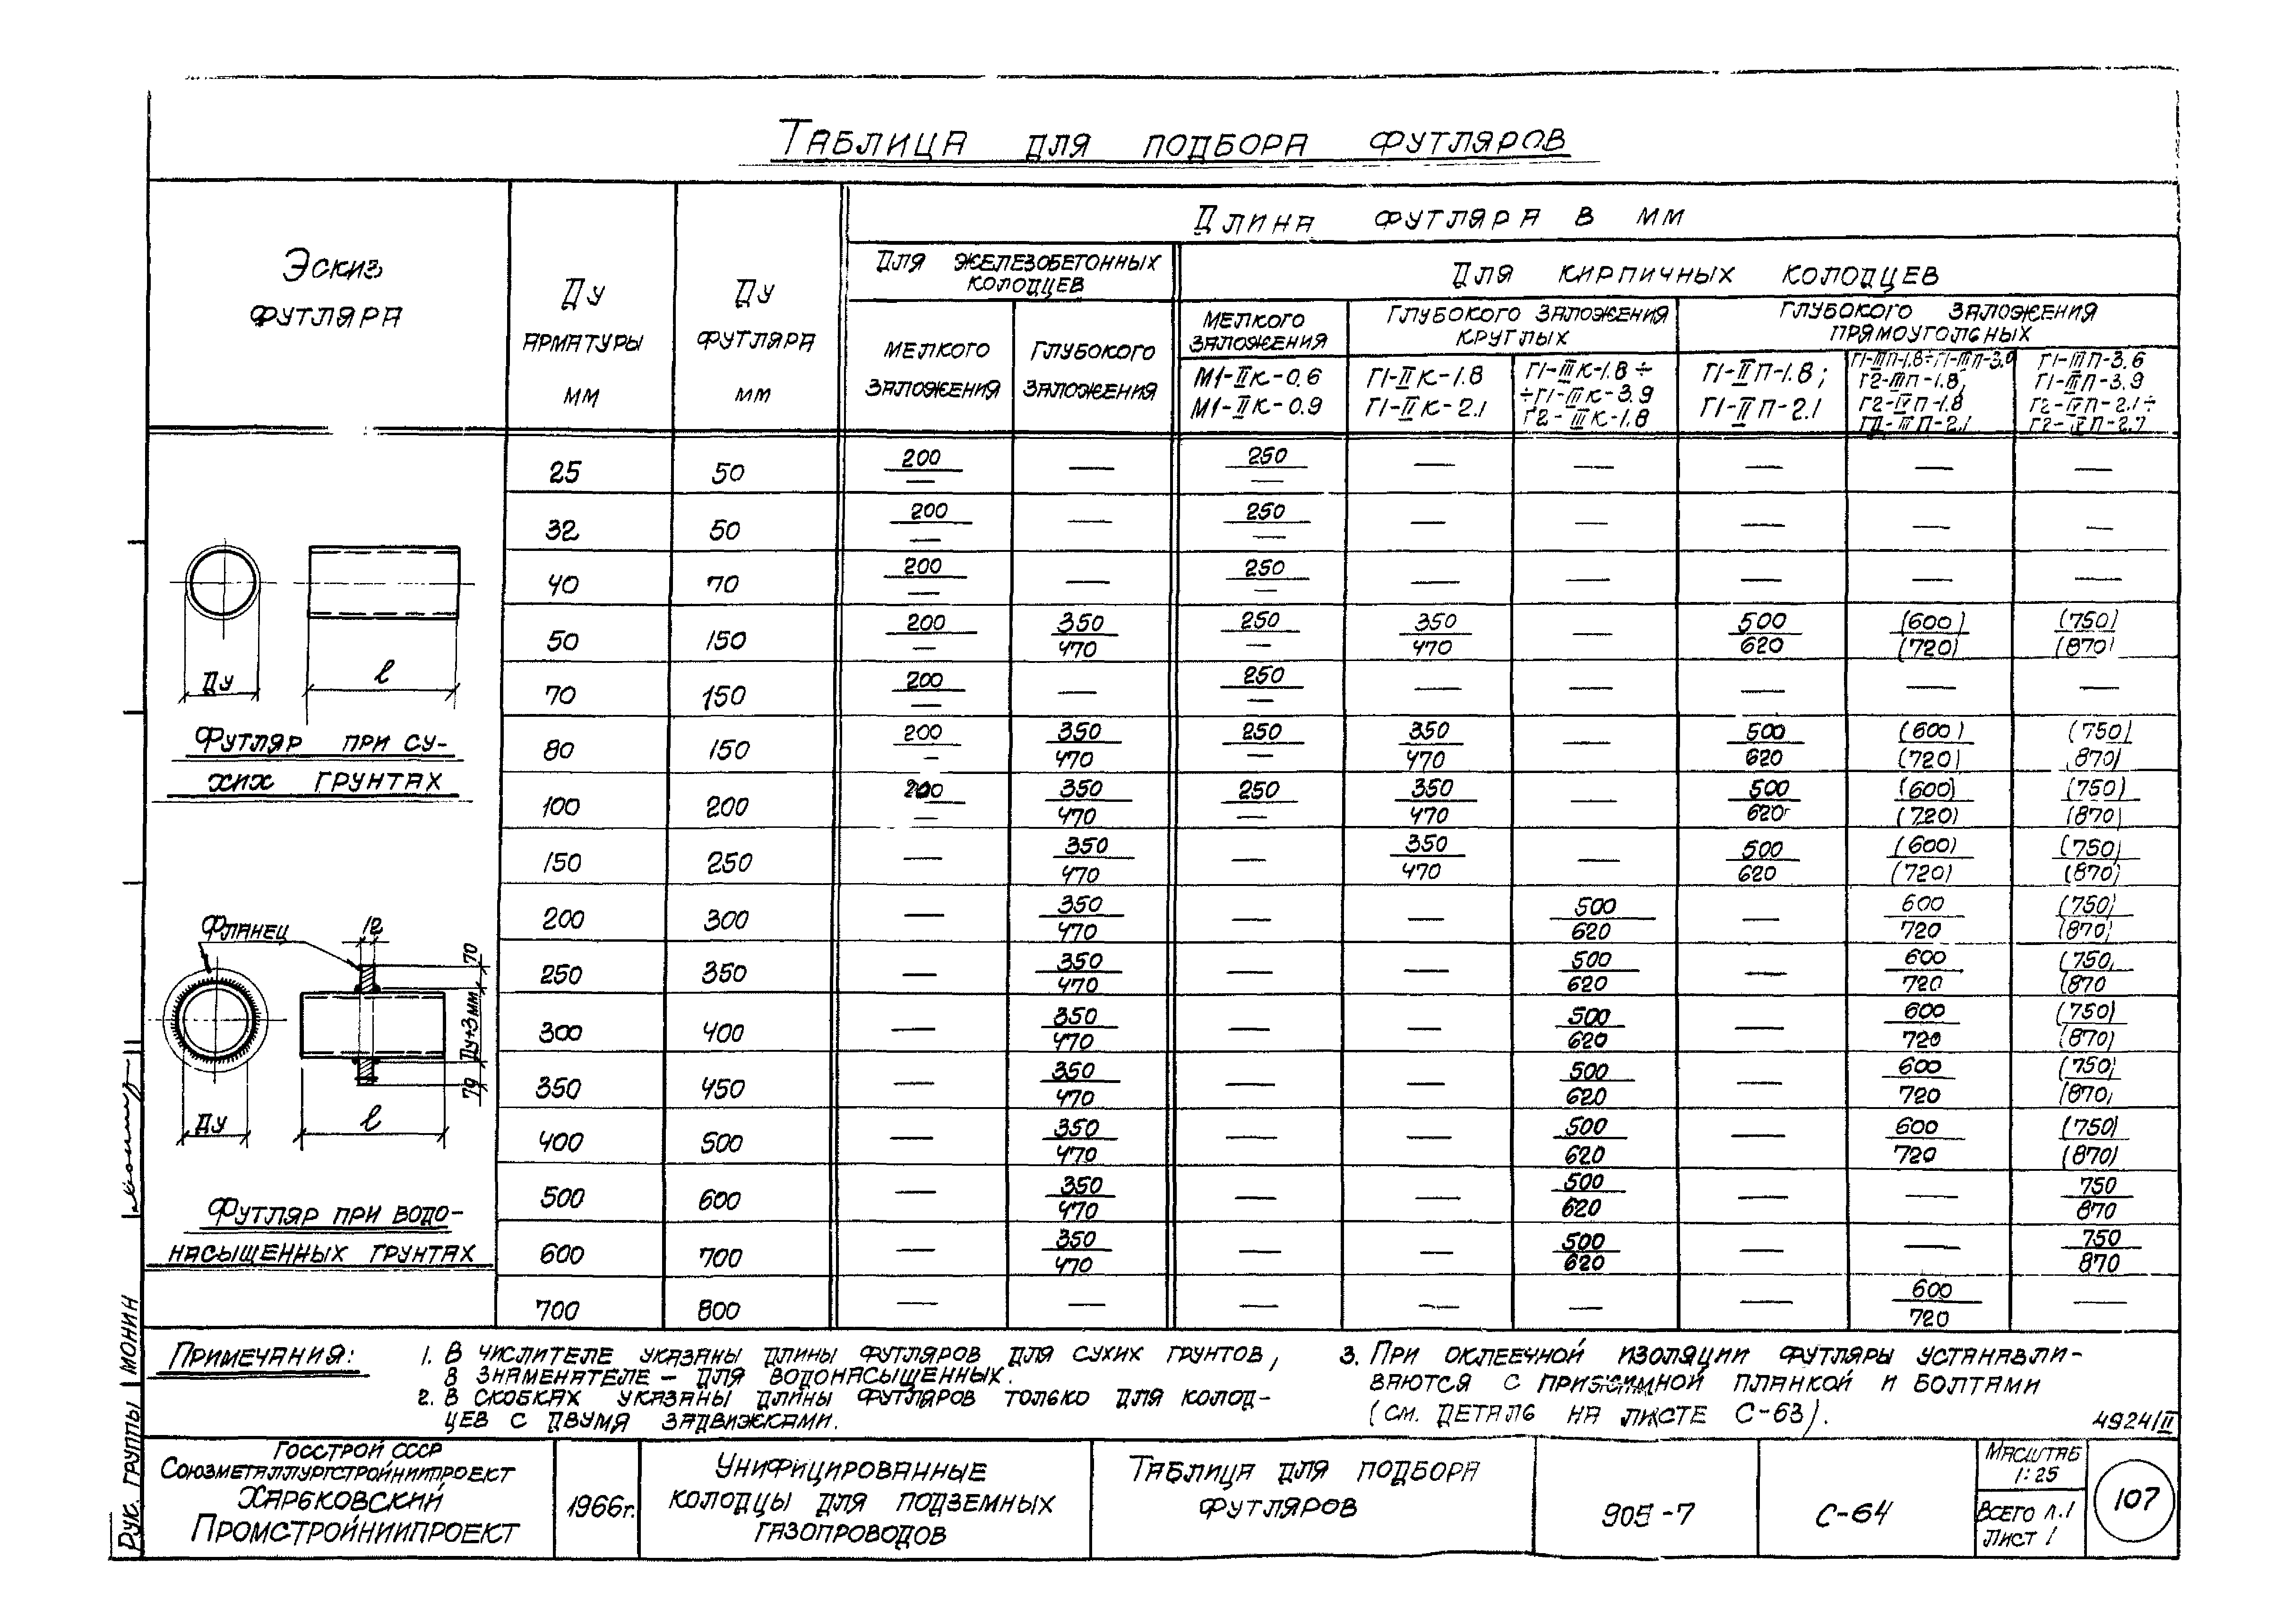 Таблица для подбора футляров
Эскиз
футляра
Ду
арматуры
мм
Ду
футляра
мм
Длина футляра в мм
Для железобетонных
колодцев
Для кирпичных колодцев
мелкого
заложения
глубокого
заложения
мелкого
заложения
глубокого заложения
круглых
глубокого заложения
прямоугольных
М1-IIК-0.6
М1-IIК-0.9
Г1-IIК-1.8
Г1-IIК-2.1
Г1-IIIК-1.8÷
÷Г1-IIIК-3.9
Г2-IIIК-1.8
Г1-IIП-1.8;
Г1-IIП-2.1
Г1-IIIП-1.8÷Г1-IIIП-3.0
Г2-IIIП-1.8;
Г2-IVП-1.8
ГД-IIIП-2.1
Г1-IIIП-3.6
Г1-IIIП-3.9
Г2-IVП-2.1÷
Г2-IVП-2.7
25 50 200/— — 250/— — — — — —
32 50 200/— — 250/— — — — — —
40 70 200/— — 250/— — — — — —
50 150 200/— 350/470 250/— 350/470 — 500/620 (600)/(720) (750)/(870)
70 150 200/— — 250/— — — — — —
80 150 200/— 350/470 250/— 350/470 — 500/620 (600)/(720) (750)/(870)
100 200 200/— 350/470 250/— 350/470 — 500/620 (600)/(720) (750)/(870)
150 250 — 350/470 — 350/470 — 500/620 (600)/(720) (750)/(870)
200 300 — 350/470 — — 500/620 — 600/720 (750)/(870)
250 350 — 350/470 — — 500/620 — 600/720 (750)/(870)
300 400 — 350/470 — — 500/620 — 600/720 (750)/(870)
350 450 — 350/470 — — 500/620 — 600/720 (750)/(870)
400 500 — 350/470 — — 500/620 — 600/720 (750)/(870)
500 600 — 350/470 — — 500/620 — — 750/870
600 700 — 350/470 — — 500/620 — — 750/870
700 800 — — — — — — 600/720 —
Ду
l
Футляр при су-
хих грунтах
Фланец
12
70
Ду+3мм
70
Ду
l
Футляр при водо-
насыщенных грунтах
Примечания:
1. В числителе указаны длины футляров для сухих грунтов,
в знаменателе – для водонасыщенных.
2. В скобках указаны длины футляров только для колод-
цев с двумя задвижками.
3. При оклеечной изоляции футляры устанавли-
ваются с прижимной планкой и болтами
(см. деталь на листе С-63).
4924/II
Рук. группы Монин
Госстрой СССР
Союзметаллургстройниипроект
Харьковский
Промстройниипроект
1966г.
Унифицированные
колодцы для подземных
газопроводов
Таблица для подбора
футляров
905-7
С-64
Масштаб
1:25
Всего л.1
Лист 1
107